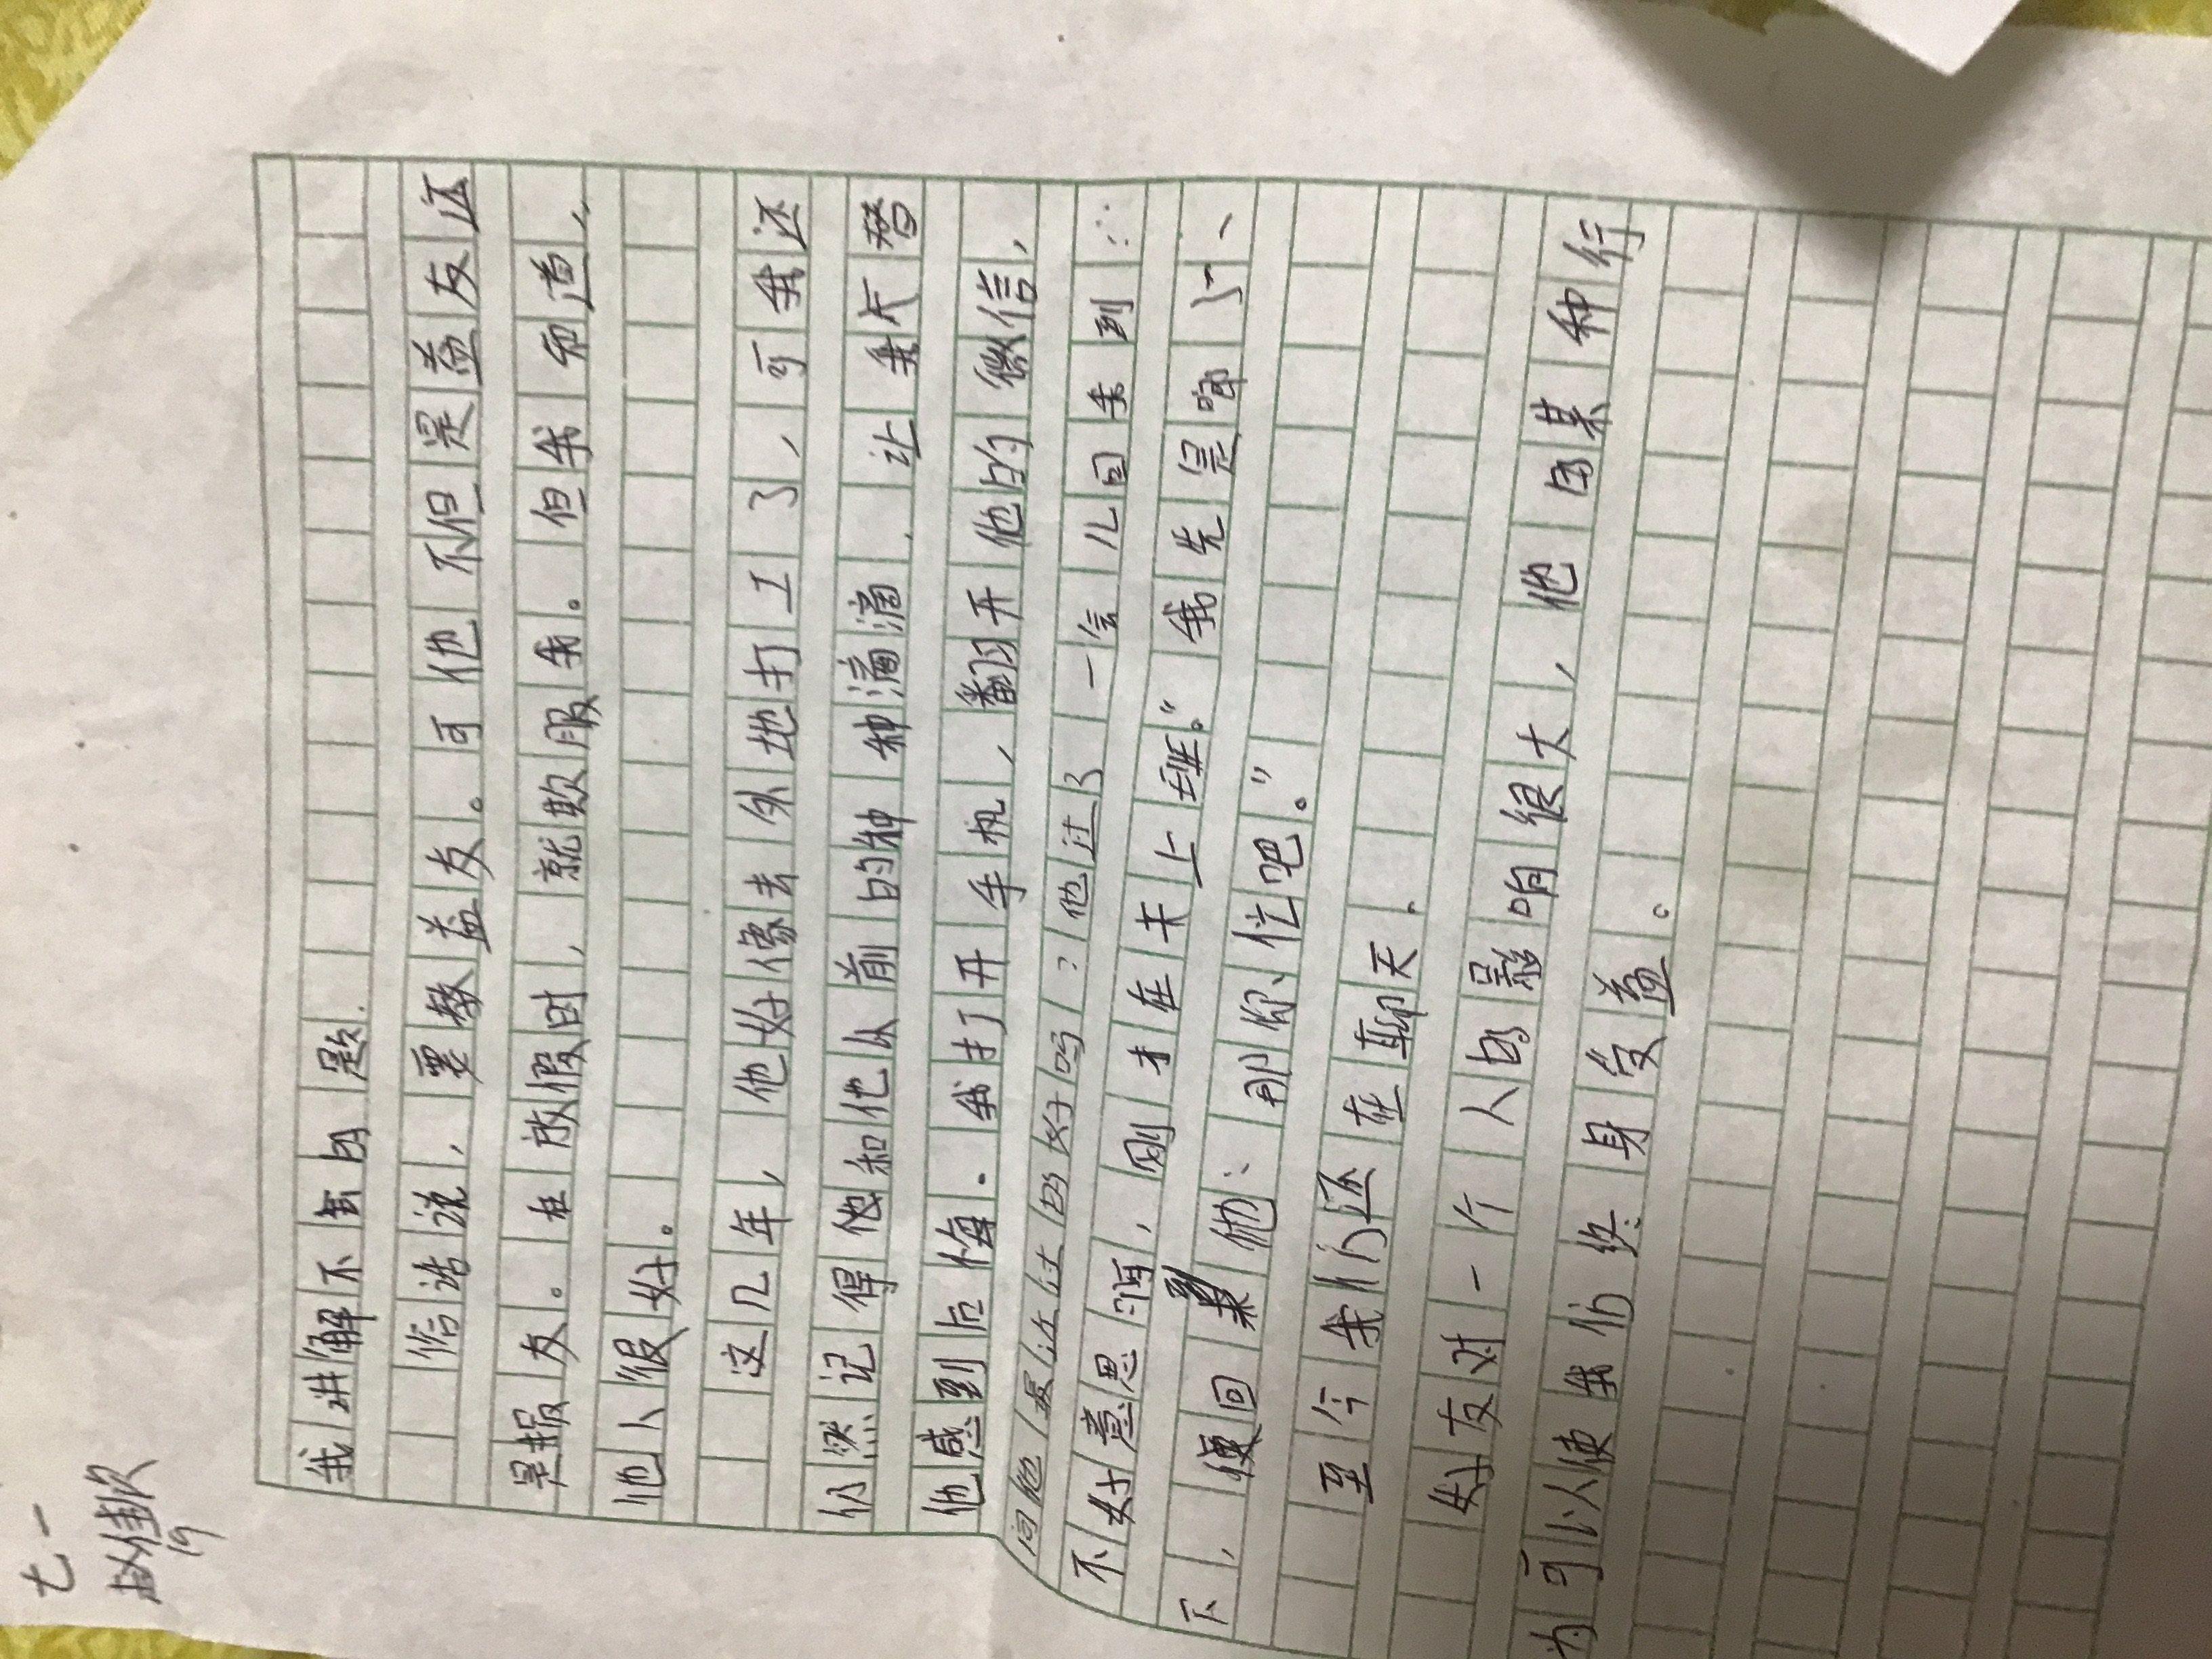 七一
赵佳欣
19
我讲解不会的题.
俗话说,要教益友。可他不但是益友还
是报友。在放假时,就欺服我。但我知道,
他人很好。
这几年,他好像去外地打工了,可我还
仍然记得他和他从前的种种滴滴.让我大替
他感到后悔.我打开手机、翻开他的微信,
问他最近过的好吗?他过了一会儿回来到:
不好意思啊,刚才在未上班。"我先是嘟了一
下,便回他:那你忙吧。"
至今我们还在聊天.
好友对一个人的影响很大,他的某种行
为可以使我们终身受益。